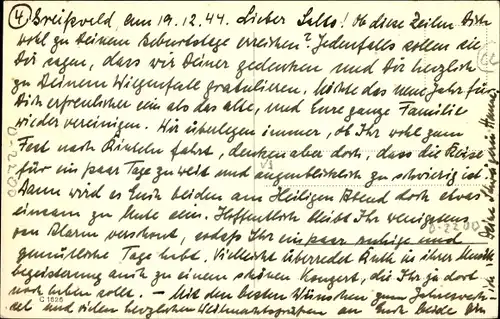 (4) Greifswald, am 19.12.44. Lieber Salls! Ob diese Zeilen Dich
wohl zu Deinem Geburtstage erreichen? Jedenfalls sollen sie
Dir sagen, dass wir Deiner gedenken und Dir herzlich
zu Deinem Wiegenfeste gratulieren. Möchte das neue Jahr für
Dich erfreulicher sein als das alte, und Eure ganze Familie
wieder vereinigen. Wir überlegen immer, ob Ihr wohl zum
Fest nach Rinteln fahrt, denken aber doch, dass die Reise
für ein paar Tage zu weit und augenblicklich zu schwierig ist.
Dann wird es Euch beiden am Heiligen Abend doch etwas
einsam zu Mute sein. Hoffentlich bleibt Ihr wenigstens
von Alarm verschont, sodass Ihr ein paar ruhige und
gemütliche Tage habt. Vielleicht überredet Ruth in ihrer Musik
begeisterung auch zu einem schönen Konzert, die Ihr ja dort
noch haben sollt. – Mit den besten Wünschen zum Jahreswech-
sel und vielen herzlichen Weihnachtsgrüßen an Euch beide
Deine Schwägerin
D-2200
D-2200
C 1626